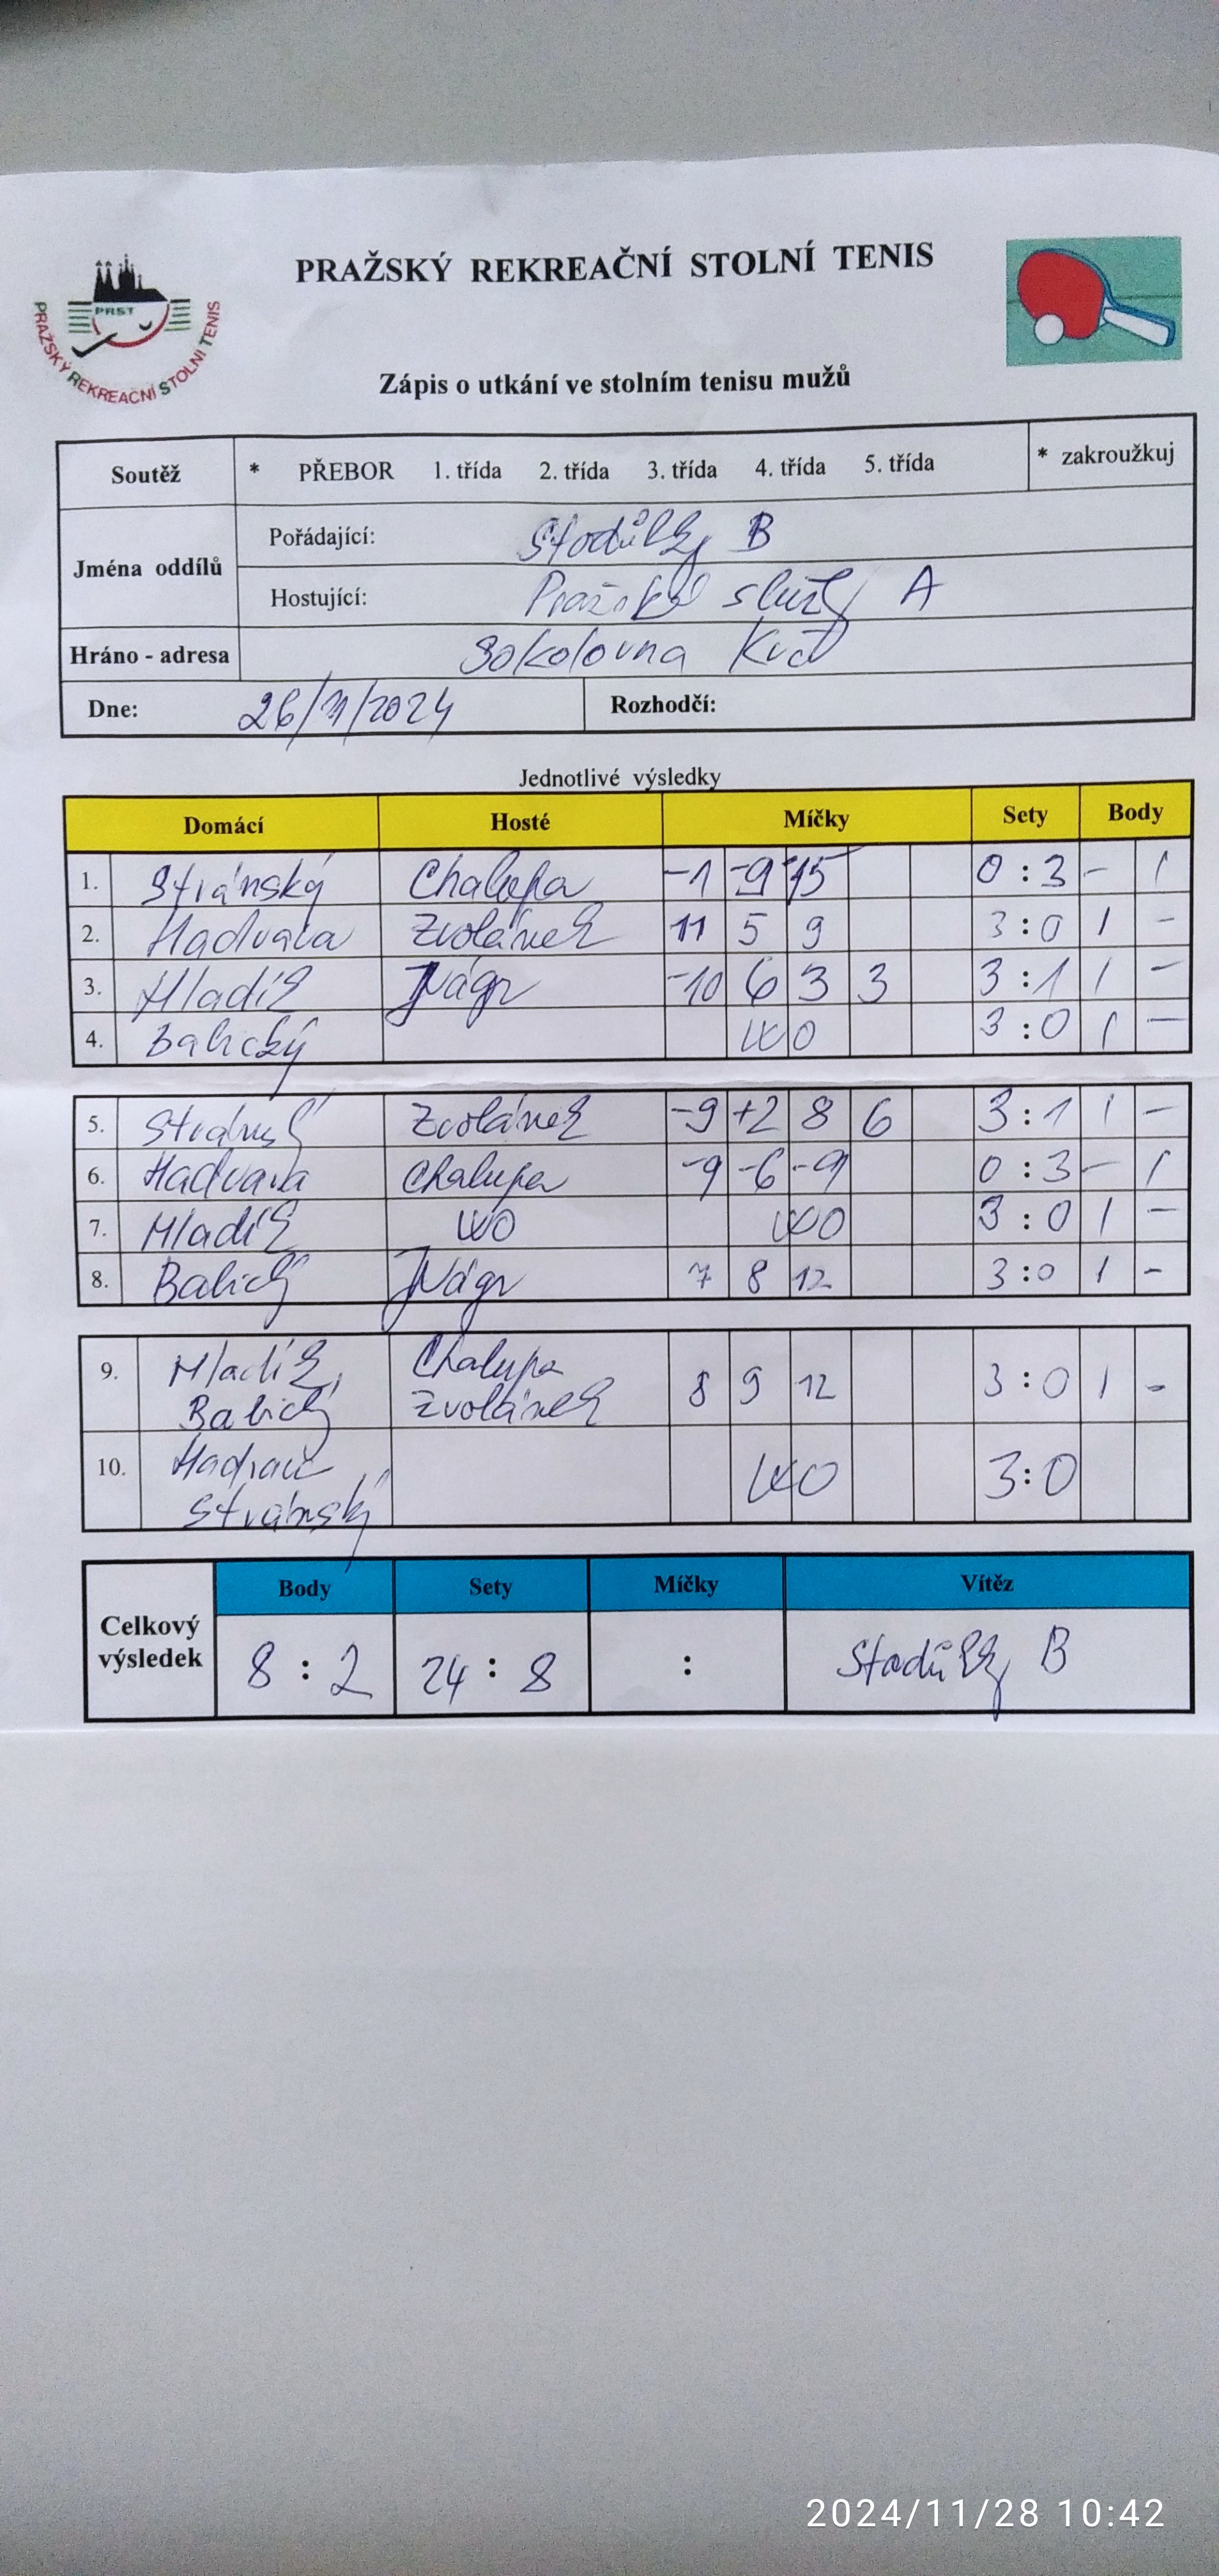 PRAŽSKÝ REKREAČNÍ STOLNÍ TENIS
PRST
PRAŽSKÝ REKREAČNÍ STOLNÍ TENIS
Zápis o utkání ve stolním tenisu mužů
Soutěž * PŘEBOR 1. třída 2. třída 3. třída 4. třída 5. třída * zakroužkuj
Jména oddílů
Pořádající: Stodůlky B
Hostující: Pražské služby A
Hráno - adresa Sokolovna
Dne: 26/11/2024 Rozhodčí:
Jednotlivé výsledky
Domácí Hosté Míčky Sety Body
1. Stránský Chalupa -1 -9 -15 0 : 3 - 1
2. Hadvava Zvolánek 11 5 9 3 : 0 1 -
3. Mladík Vágr -10 6 3 3 3 : 1 1 -
4. Balický WO 3 : 0 1 -
5. Stránský Zvolánek -9 +2 8 6 3 : 1 1 -
6. Hadvava Chalupa -9 -6 -9 0 : 3 - 1
7. Mladík WO WO 3 : 0 1 -
8. Balický Vágr 7 8 12 3 : 0 1 -
9. Mladík, Chalupa 8 9 12 3 : 0 1 -
Balický Zvolánek
10. WO 3:0
Stránský
Celkový výsledek
Body Sety Míčky Vítěz
8 : 2 24 : 8 : Stodůlky B
2024/11/28 10:42